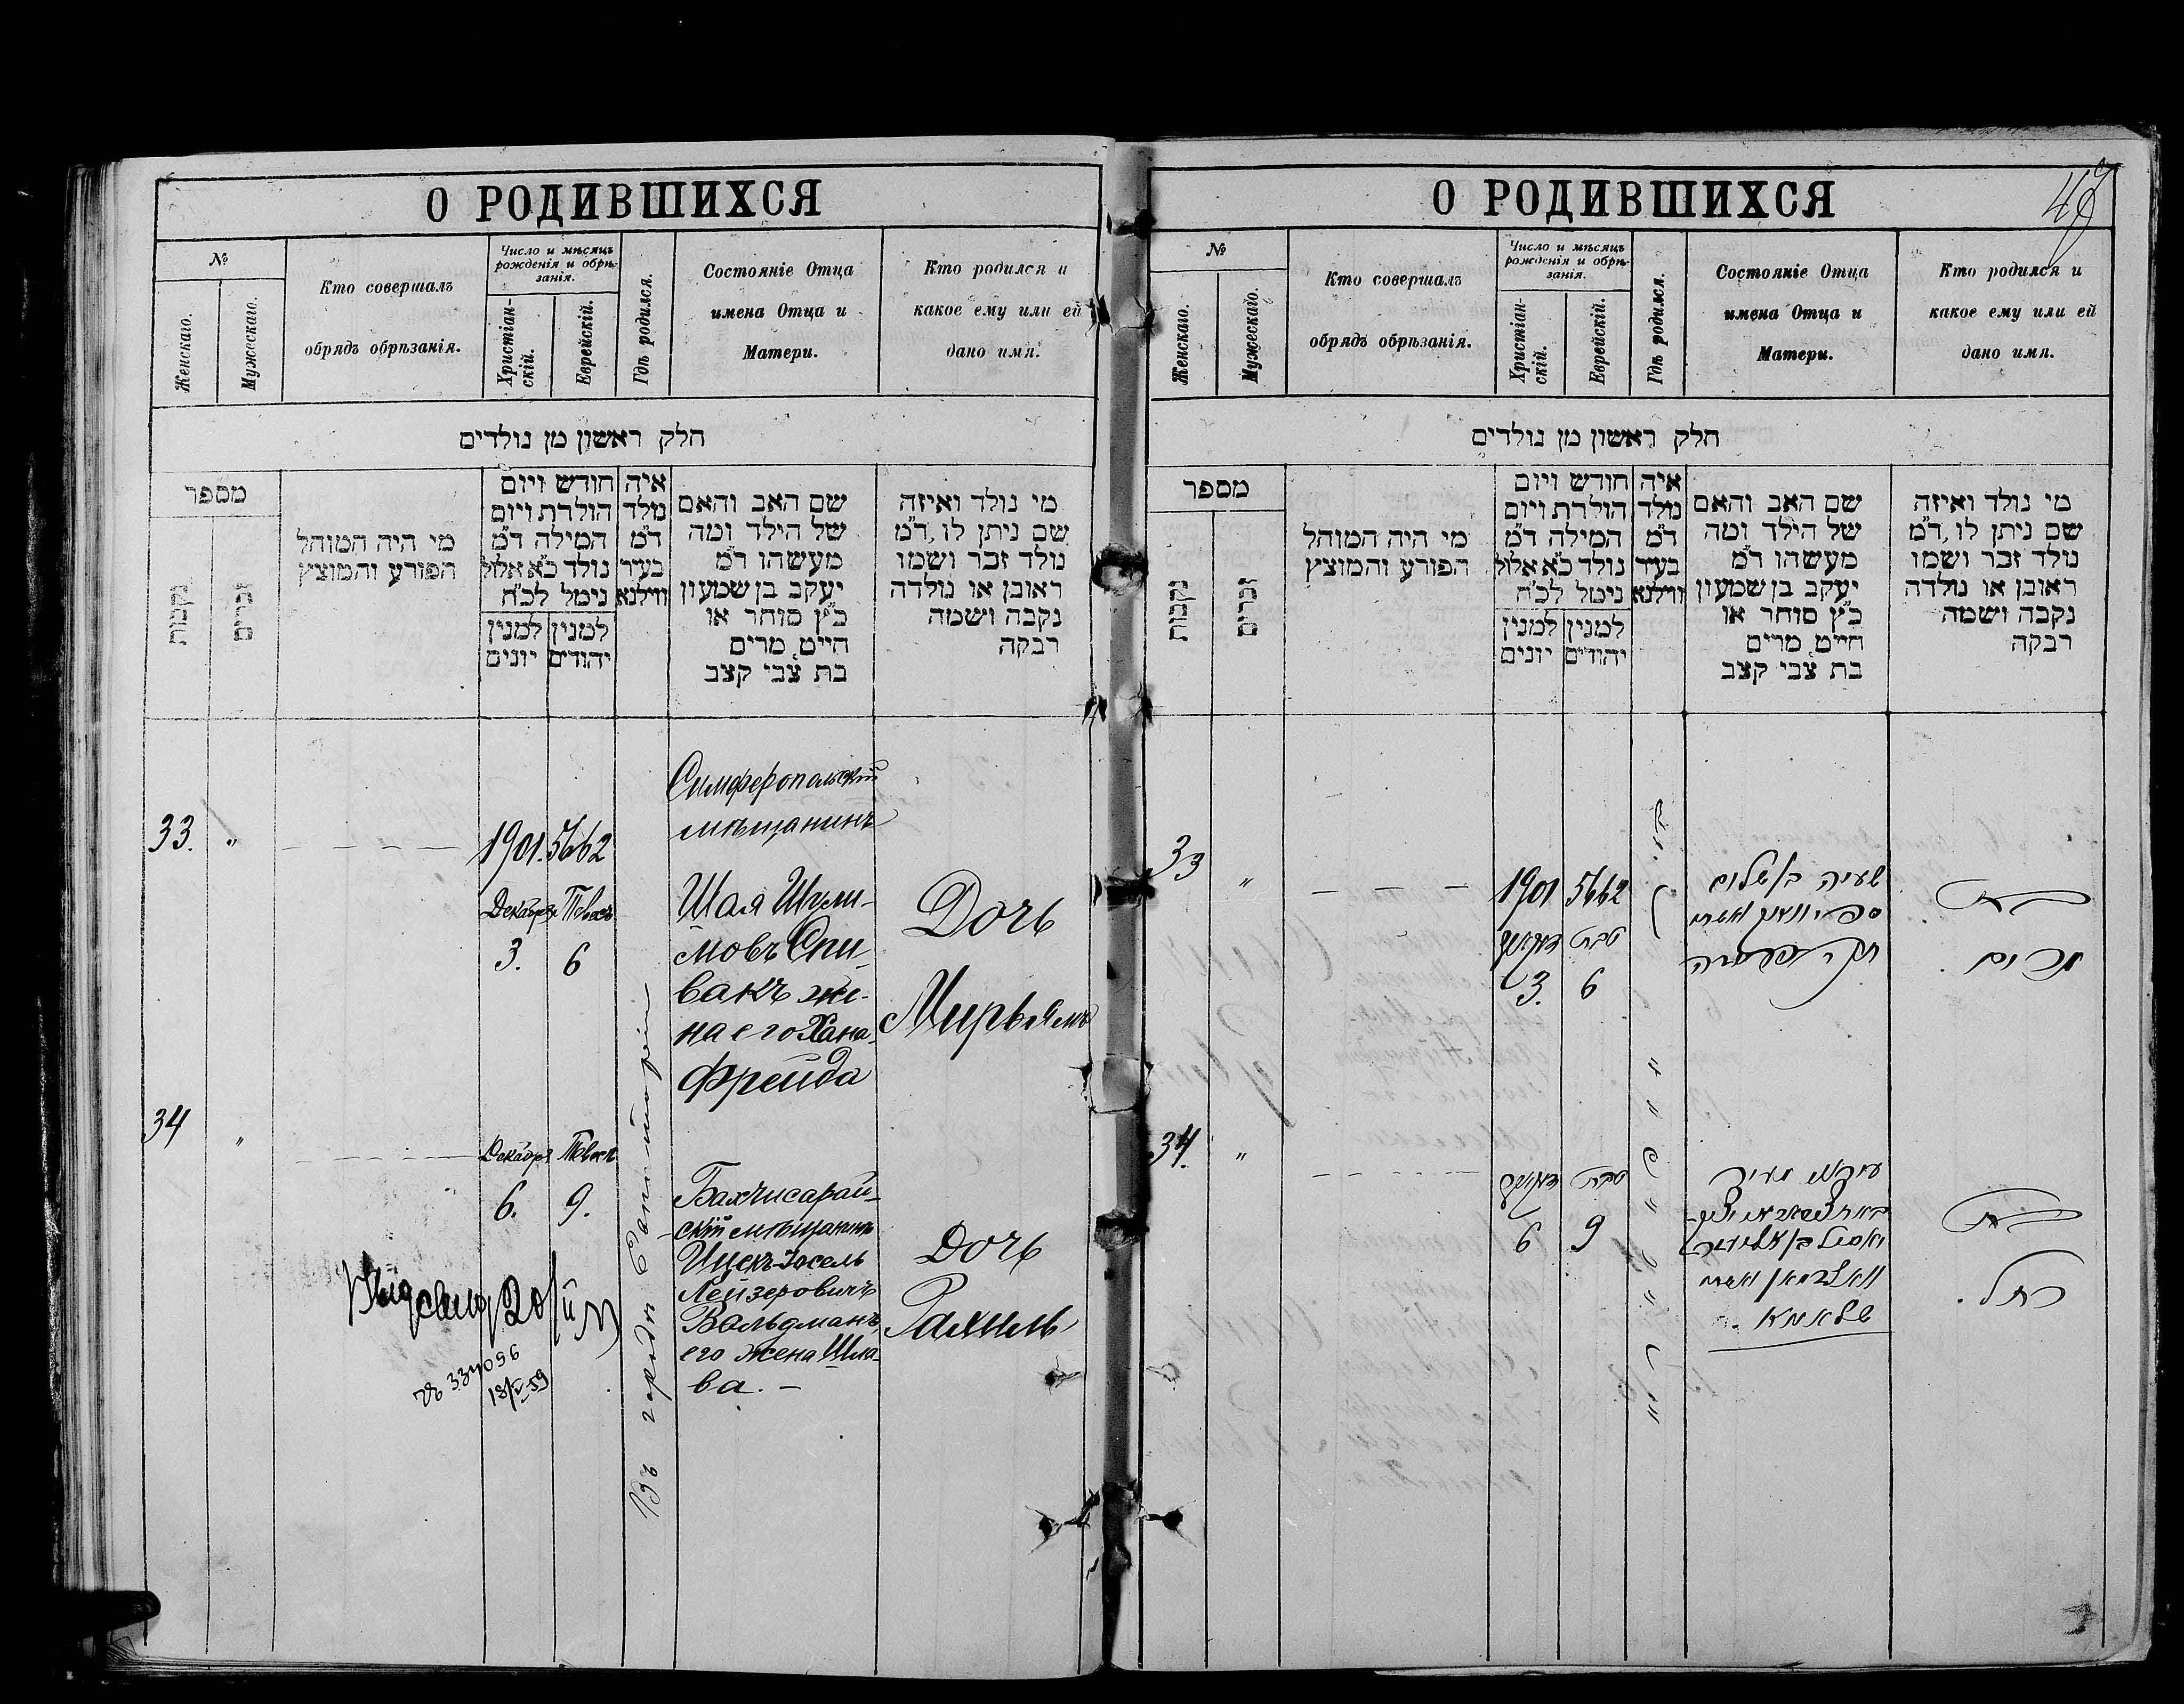 О РОДИВШИХСЯ
№
Женскаго.
Мужескаго.
Кто совершалъ
обрядъ обрѣзанія.
Число и мѣсяцъ
рожденія и обрѣ-
занія.
Христіан-
скій.
Еврейскій.
Гдѣ родился.
Состояніе Отца
имена Отца и
Матери.
Кто родился и
какое ему или ей
дано имя.
חלק ראשון מן נולדים
מספר
נקבות
זכרים
מי היה המוהל
הפורע והמוצץ
חודש ויום
הולדת ויום
המילה ד״מ
נולד כ״א אלול
נימל לכ״ח
למנין יונים
למנין יהודים
איה
נולד
ד״מ
בעיר
ווילנא
שם האב והאם
של הילד ומה
מעשהו ד״מ
יעקב בן שמעון
כ״ץ סוחר או
חייט, מרים
בת צבי קצב
מי נולד ואיזה
שם ניתן לו, ד״מ
נולד זכר ושמו
ראובן או נולדה
נקבה וישמה
רבקה
33. "
1901. 5662
Декабря Тевесъ
3. 6
Симферопольскій
мѣщанинъ
Шая Шули-
мовъ Спи-
вакъ же-
на его Хана
Фрейда
Дочь
Мирьямъ
34 "
Декабря Тевесъ
6. 9.
Бахчисарай-
скій мѣщанинъ
Ицекъ-Іосель
Лейзеровичъ
Вальдманъ,
его жена Шла-
ва. —
Дочь
Рахиль
Въ городѣ Евпаторіи
334096
О РОДИВШИХСЯ
№
Женскаго.
Мужескаго.
Кто совершалъ
обрядъ обрѣзанія.
Число и мѣсяцъ
рожденія и обрѣ-
занія.
Христіан-
скій.
Еврейскій.
Гдѣ родился.
Состояніе Отца
имена Отца и
Матери.
Кто родился и
какое ему или ей
дано имя.
חלק ראשון מן נולדים
מספר
נקבות
זכרים
מי היה המוהל
הפורע והמוצץ
חודש ויום
הולדת ויום
המילה ד״מ
נולד כ״א אלול
נימל לכ״ח
למנין יונים
למנין יהודים
איה
נולד
ד״מ
בעיר
ווילנא
שם האב והאם
של הילד ומה
מעשהו ד״מ
יעקב בן שמעון
כ״ץ סוחר או
חייט, מרים
בת צבי קצב
מי נולד ואיזה
שם ניתן לו, ד״מ
נולד זכר ושמו
ראובן או נולדה
נקבה וישמה
רבקה
33 "
1901 5662
טבת
3. 6
שעיה בן שלום
בת
מרים
34. "
טבת
6 9
בת
רחל.